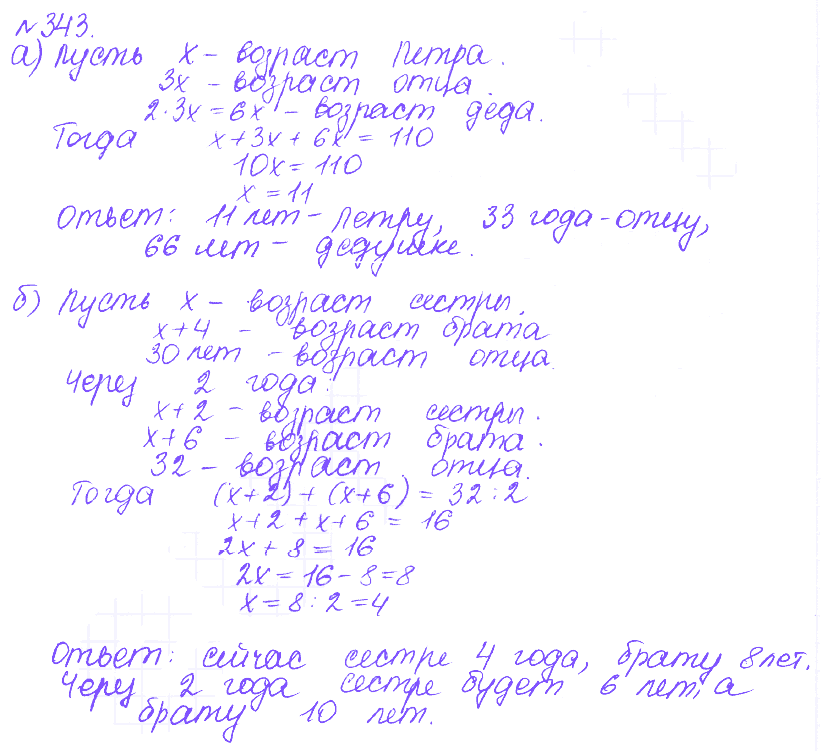 №343.
а) Пусть х – возраст Петра.
3х – возраст отца.
2·3х = 6х – возраст деда.
Тогда х+3х+6х = 110
10х = 110
х = 11
Ответ: 11 лет – Петру, 33 года – отцу,
66 лет – дедушке.
б) Пусть х – возраст сестры.
х+4 – возраст брата
30 лет – возраст отца.
Через 2 года:
х+2 – возраст сестры.
х+6 – возраст брата.
32 – возраст отца.
Тогда (х+2)+(х+6) = 32:2
х+2+х+6 = 16
2х+8 = 16
2х = 16-8=8
х = 8:2=4
Ответ: сейчас сестре 4 года, брату 8 лет.
Через 2 года сестре будет 6 лет, а
брату 10 лет.